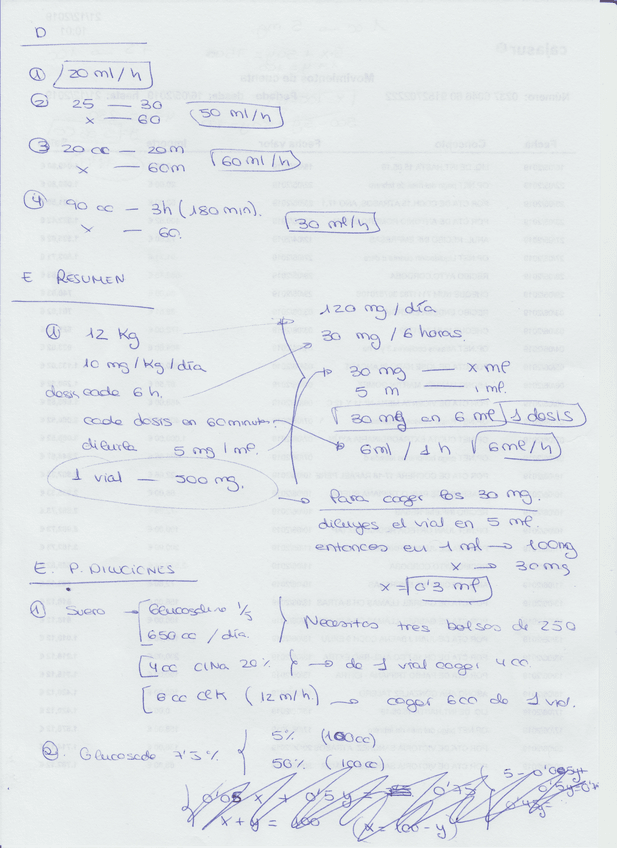 D
① 20 ml/h
② 25 — 30
x — 60 50 ml/h
③ 20 cc — 20m
x — 60m 60 ml/h
④ 90 cc — 3h (180 min).
x — 60. 30 ml/h
E RESUMEN
① 12 Kg
10 mg/Kg/día
dosis cada 6 h.
cada dosis en 60 minutos
diluirla 5 mg/ml.
1 vial — 500 mg.
120 mg/día
30 mg/6 horas.
30 mg — x ml
5 m — 1 ml.
30 mg en 6 ml 1 dosis
6ml / 1 h 6ml/h
Para coger los 30 mg.
diluyes el vial en 5 ml
entonces en 1 ml → 100mg
x → 30 mg
x = 0'3 ml
E. P. DILUCIONES
① Suero → Glucosalino 1/5
650 cc / día. Necesitas tres bolsas de 250
4 cc ClNa 20% → de 1 vial coger 4 cc.
6 cc ClK (12 m/h) → coger 6cc de 1 vial.
② Glucosado 7'5%
5% (100cc)
50% (100cc)
0'05 x + 0'5 y =
x + y = 100 (x = 100 - y)